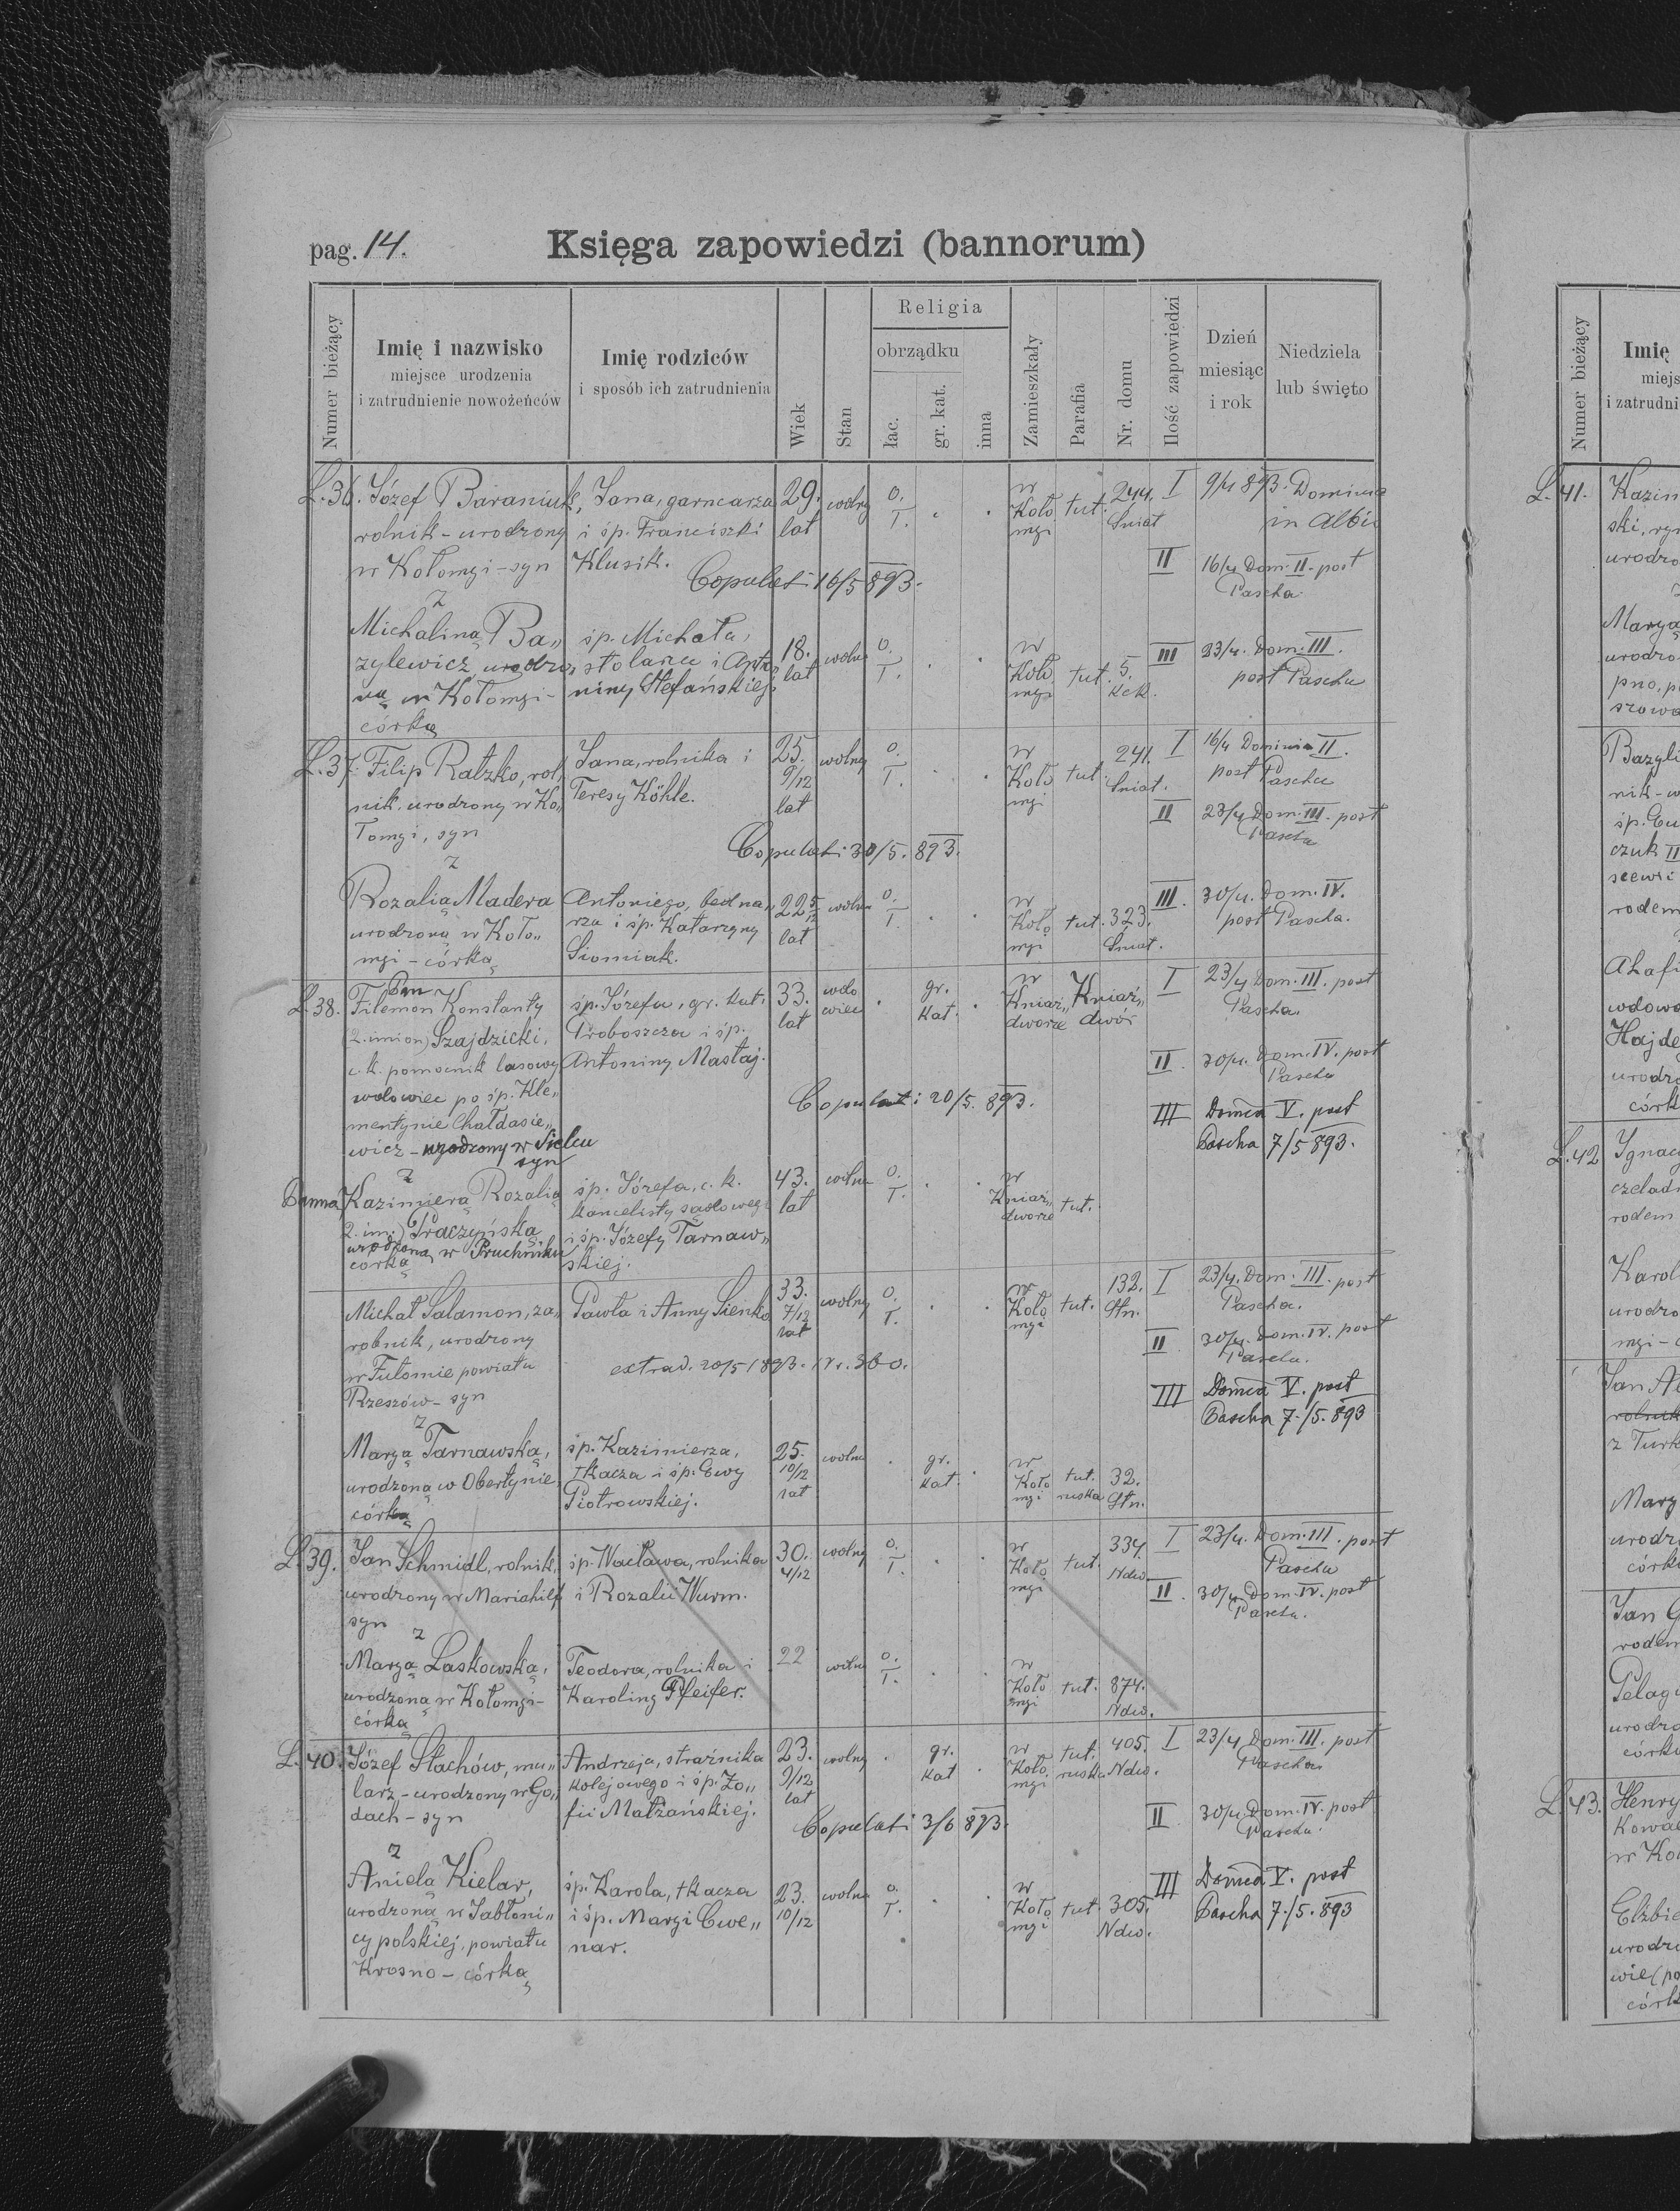 pag. 14.
Księga zapowiedzi (bannorum)
Numer bieżący
Imię i nazwisko
miejsce urodzenia
i zatrudnienie nowożeńców
Imię rodziców
i sposób ich zatrudnienia
Wiek
Stan
Religia
obrządku
łac.
gr. kat.
inna
Zamieszkały
Parafia
Nr. domu
Ilość zapowiedzi
Dzień
miesiąc
i rok
Niedziela
lub święto
L. 36. Józef Baraniuk,
rolnik - urodzony
w Kołomyi - syn
Jana, garncarza
i śp. Franciszki
Klusik.
29.
lat
wolny
o.
ł.
w
Koło
myi
tut.
244.
Śniat
I 9/4 893. Dominica
in Albis
II 16/4 Dom. II. post
Pascha
Copulati 16/5 893.
z
Michaliną Ba„
zylewicz, urodzo„
ną w Kołomyi -
córką
śp. Michała,
stolarza i Anto„
niny Stefańskiej.
18.
lat
wolna
o.
ł.
w
Koło
myi
tut.
5.
Kck.
III 23/4. Dom. III.
post Pascha
L. 37. Filip Ratzko, rol„
nik, urodzony w Ko„
łomyi, syn
Jana, rolnika i
Teresy Köhle.
25.
9/12
lat
wolny
o.
ł.
w
Koło
myi
tut.
241.
Śniat.
I 16/4 Dominica II.
post Pascha
II 23/4 Dom. III. post
Pascha
Copulati 30/5. 893.
z
Rozalią Madera
urodzoną w Koło„
myi - córką
Antoniego, bedna„
rza i śp. Katarzyny
Siomiak.
22 5/12
lat
wolna
o.
ł.
w
Koło
myi
tut.
323.
Śniat.
III. 30/4. Dom. IV.
post Pascha.
Pan
L. 38. Filemon Konstanty
(2. imion) Szajdzicki,
c. k. pomocnik lasowy
wdowiec po śp. Kle„
mentynie Chałdasie„
wicz - urodzony w Sielcu
syn
śp. Józefa, gr. kat.
Proboszcza i śp.
Antoniny Mastaj.
33.
lat
wdo
wiec
gr.
kat.
w
Kniaź„
dworze
Kniaź„
dwór
I 23/4 Dom. III. post
Pascha.
II. 30/4. Dom. IV. post
Pascha
III Domca V. post
Pascha 7/5 893.
Copulati 20/5. 893.
z
Panna Kazimierą Rozalią
2. im.) Praczyńską
urodzoną w Pruchniku
córką
śp. Józefa, c. k.
kancelisty sądowego
i śp. Józefy Tarnaw„
skiej.
43.
lat
wolna
o.
ł.
w
Kniaź„
dworze
tut.
Michał Salamon, za„
robnik, urodzony
w Futomie powiatu
Rzeszów - syn
Pawła i Anny Sienko
33.
7/12
lat
wolny
o.
ł.
w
Koło
myi
tut.
132.
Stn.
I 23/4. Dom. III. post
Pascha.
II 30/4. Dom. IV. post
Pascha.
III Domca V. post
Pascha 7./5. 893
extrad. 20/5 1893. Nr. 360.
z
Maryą Tarnawską,
urodzoną w Obertynie
córką
śp. Kazimierza,
tkacza i śp. Ewy
Piotrowskiej.
25.
10/12
lat
wolna
gr.
kat.
w
Koło
myi
tut.
ruska
32.
Stn.
L. 39. Jan Schmidl, rolnik,
urodzony w Mariahilf
syn
śp. Wacława, rolnika
i Rozalii Wurm.
30.
4/12
wolny
o.
ł.
w
Koło
myi
tut.
334.
Ndw.
I 23/4. Dom. III. post
Pascha
II. 30/4 Dom. IV. post
Pascha.
z
Maryą Laskowską,
urodzoną w Kołomyi -
córką
Teodora, rolnika i
Karoliny Pfeifer.
22
wolna
o.
ł.
w
Koło
myi
tut.
874.
Ndw.
L. 40. Józef Stachów, mu„
larz - urodzony w Go„
dach - syn
Andrzeja, strażnika
kolejowego i śp. Zo„
fii Małżańskiej.
23.
9/12
lat
wolny
gr.
kat
w
Koło
myi
tut.
ruska
405.
Ndw.
I 23/4 Dom. III. post
Pascha.
II 30/4. Dom. IV. post
Pascha.
Copulati 3/6 893.
z
Anielą Kielar,
urodzoną w Jabłoni„
cy polskiej, powiatu
Krosno - córką
śp. Karola, tkacza
i śp. Maryi Cwe„
nar.
23.
10/12
wolna
o.
ł.
w
Koło
myi
tut.
305.
Ndw.
III Domca V. post
Pascha 7./5. 893
Numer bieżący
Imię
miejs
i zatrudni
L. 41. Kazim
ski, ry
urodzo
Maryą
urodzo
pno, p
szowa
Bazyli
nik - w
śp. Eu
czuk II
rodem
Ahafi
wdowa
Hajde
urodzo
córk
L. 42 Ignac
czelad
rodem
Karol
urodzo
myi - c
Jan A
rolnik
z Turk
Mary
urodz
córk
Jan G
rodem
Pelagi
urodzo
córk
L. 43. Henry
Kowal
w Ko
Elżbie
urodzo
wie (po
córk